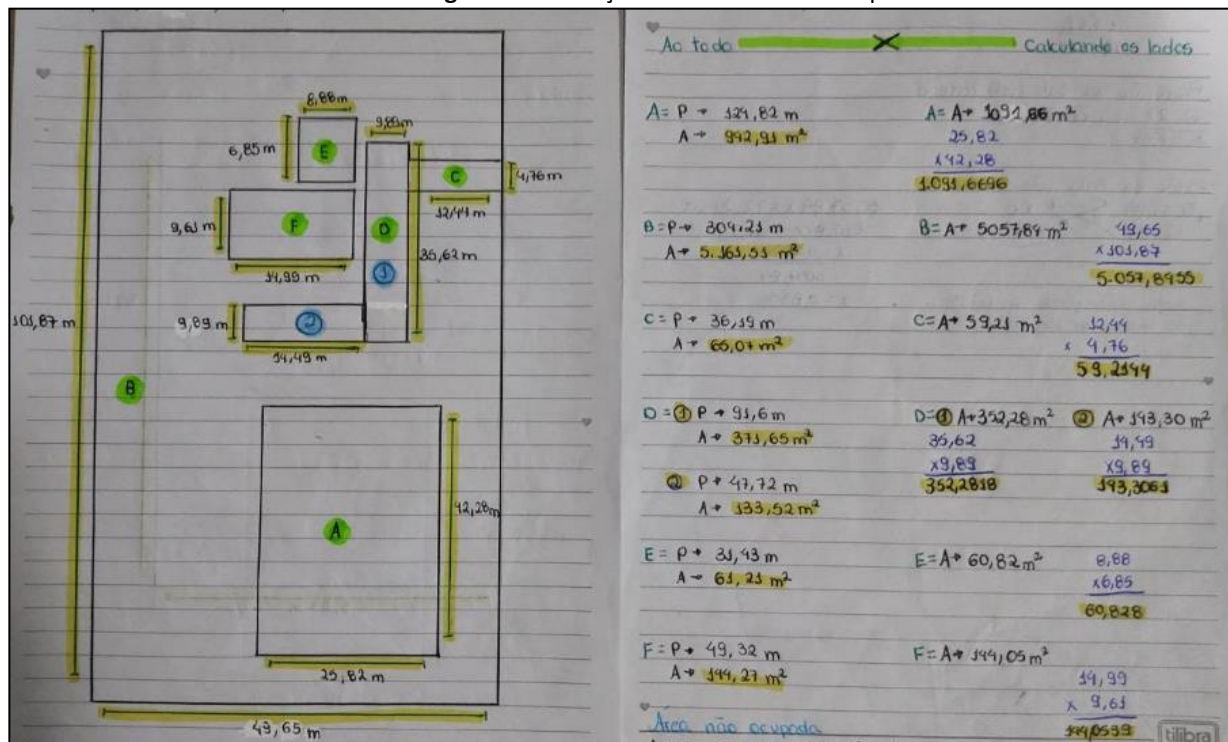 8,88m
9,89m
6,85 m
E
C
4,76 m
12,44 m
9,61 m
F
D
35,62 m
14,99 m
1
101,87 m
9,89 m
2
14,49 m
B
42,28m
A
25,82 m
49,65 m
Ao todo
Calculando os lados
A = P → 124,82 m
A → 992,91 m²
A = A → 1091,66 m²
25,82
x42,28
1.091,6696
B = P → 304,21 m
A → 5.161,51 m²
B = A → 5057,89 m²
49,65
x101,87
5.057,8455
C = P → 36,19 m
A → 66,07 m²
C = A → 59,21 m²
12,44
x 4,76
59,2144
D = 1 P → 91,6 m
A → 371,65 m²
2 P → 47,72 m
A → 133,52 m²
D = 1 A → 352,28 m²
35,62
x9,89
352,2818
2 A → 143,30 m²
14,49
x9,89
143,3061
E = P → 31,43 m
A → 61,21 m²
E = A → 60,82 m²
8,88
x6,85
60,828
F = P → 49,32 m
A → 144,27 m²
F = A → 144,05 m²
14,99
x 9,61
144,0539
Área não ocupada
tilibra